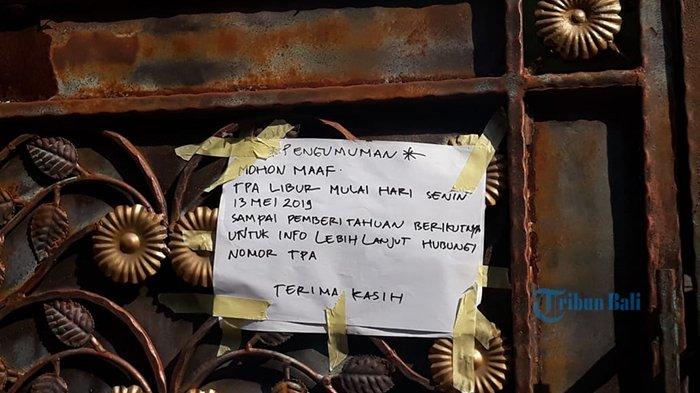 PENGUMUMAN *
MOHON MAAF.
TPA LIBUR MULAI HARI SENIN
13 MEI 2019
SAMPAI PEMBERITAHUAN BERIKUTNYA
UNTUK INFO LEBIH LANJUT HUBUNGI
NOMOR TPA
TERIMA KASIH
Tribun Bali